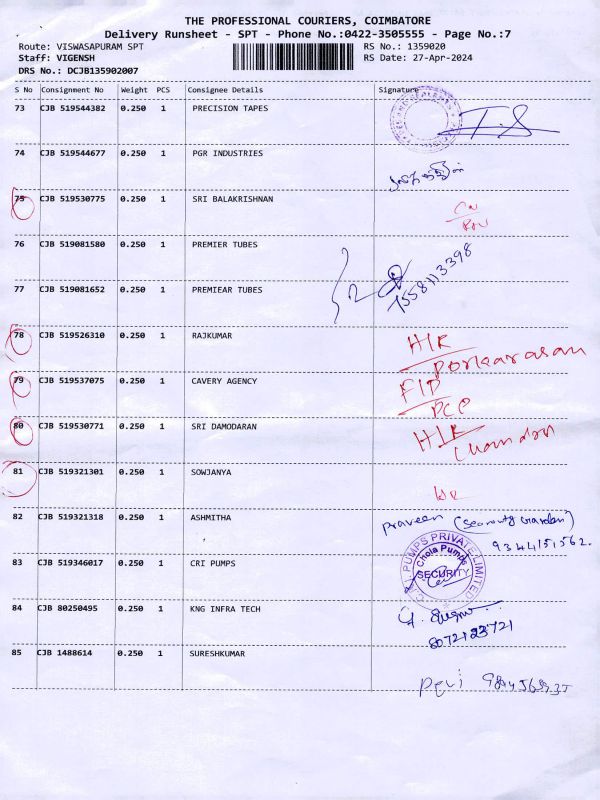 THE PROFESSIONAL COURIERS, COIMBATORE
Delivery Runsheet - SPT - Phone No.:0422-3505555 - Page No.:7
Route: VISWASAPURAM SPT RS No.: 1359020
Staff: VIGENSH RS Date: 27-Apr-2024
DRS No.: DCJB135902007
S No Consignment No Weight PCS Consignee Details Signature
73 CJB 519544382 0.250 1 PRECISION TAPES
74 CJB 519544677 0.250 1 PGR INDUSTRIES
75 CJB 519530775 0.250 1 SRI BALAKRISHNAN
76 CJB 519081580 0.250 1 PREMIER TUBES
7558113398
77 CJB 519081652 0.250 1 PREMIEAR TUBES
78 CJB 519526310 0.250 1 RAJKUMAR
H/R
Porkarasan
79 CJB 519537075 0.250 1 CAVERY AGENCY
80 CJB 519530771 0.250 1 SRI DAMODARAN
H/R
Chandra
81 CJB 519321301 0.250 1 SOWJANYA
82 CJB 519321318 0.250 1 ASHMITHA praveen
9344151562.
83 CJB 519346017 0.250 1 CRI PUMPS
C.R.I. PUMPS PRIVATE LIMITED
Chola Pumps
SECURITY
84 CJB 80250495 0.250 1 KNG INFRA TECH
8072123721
85 CJB 1488614 0.250 1 SURESHKUMAR